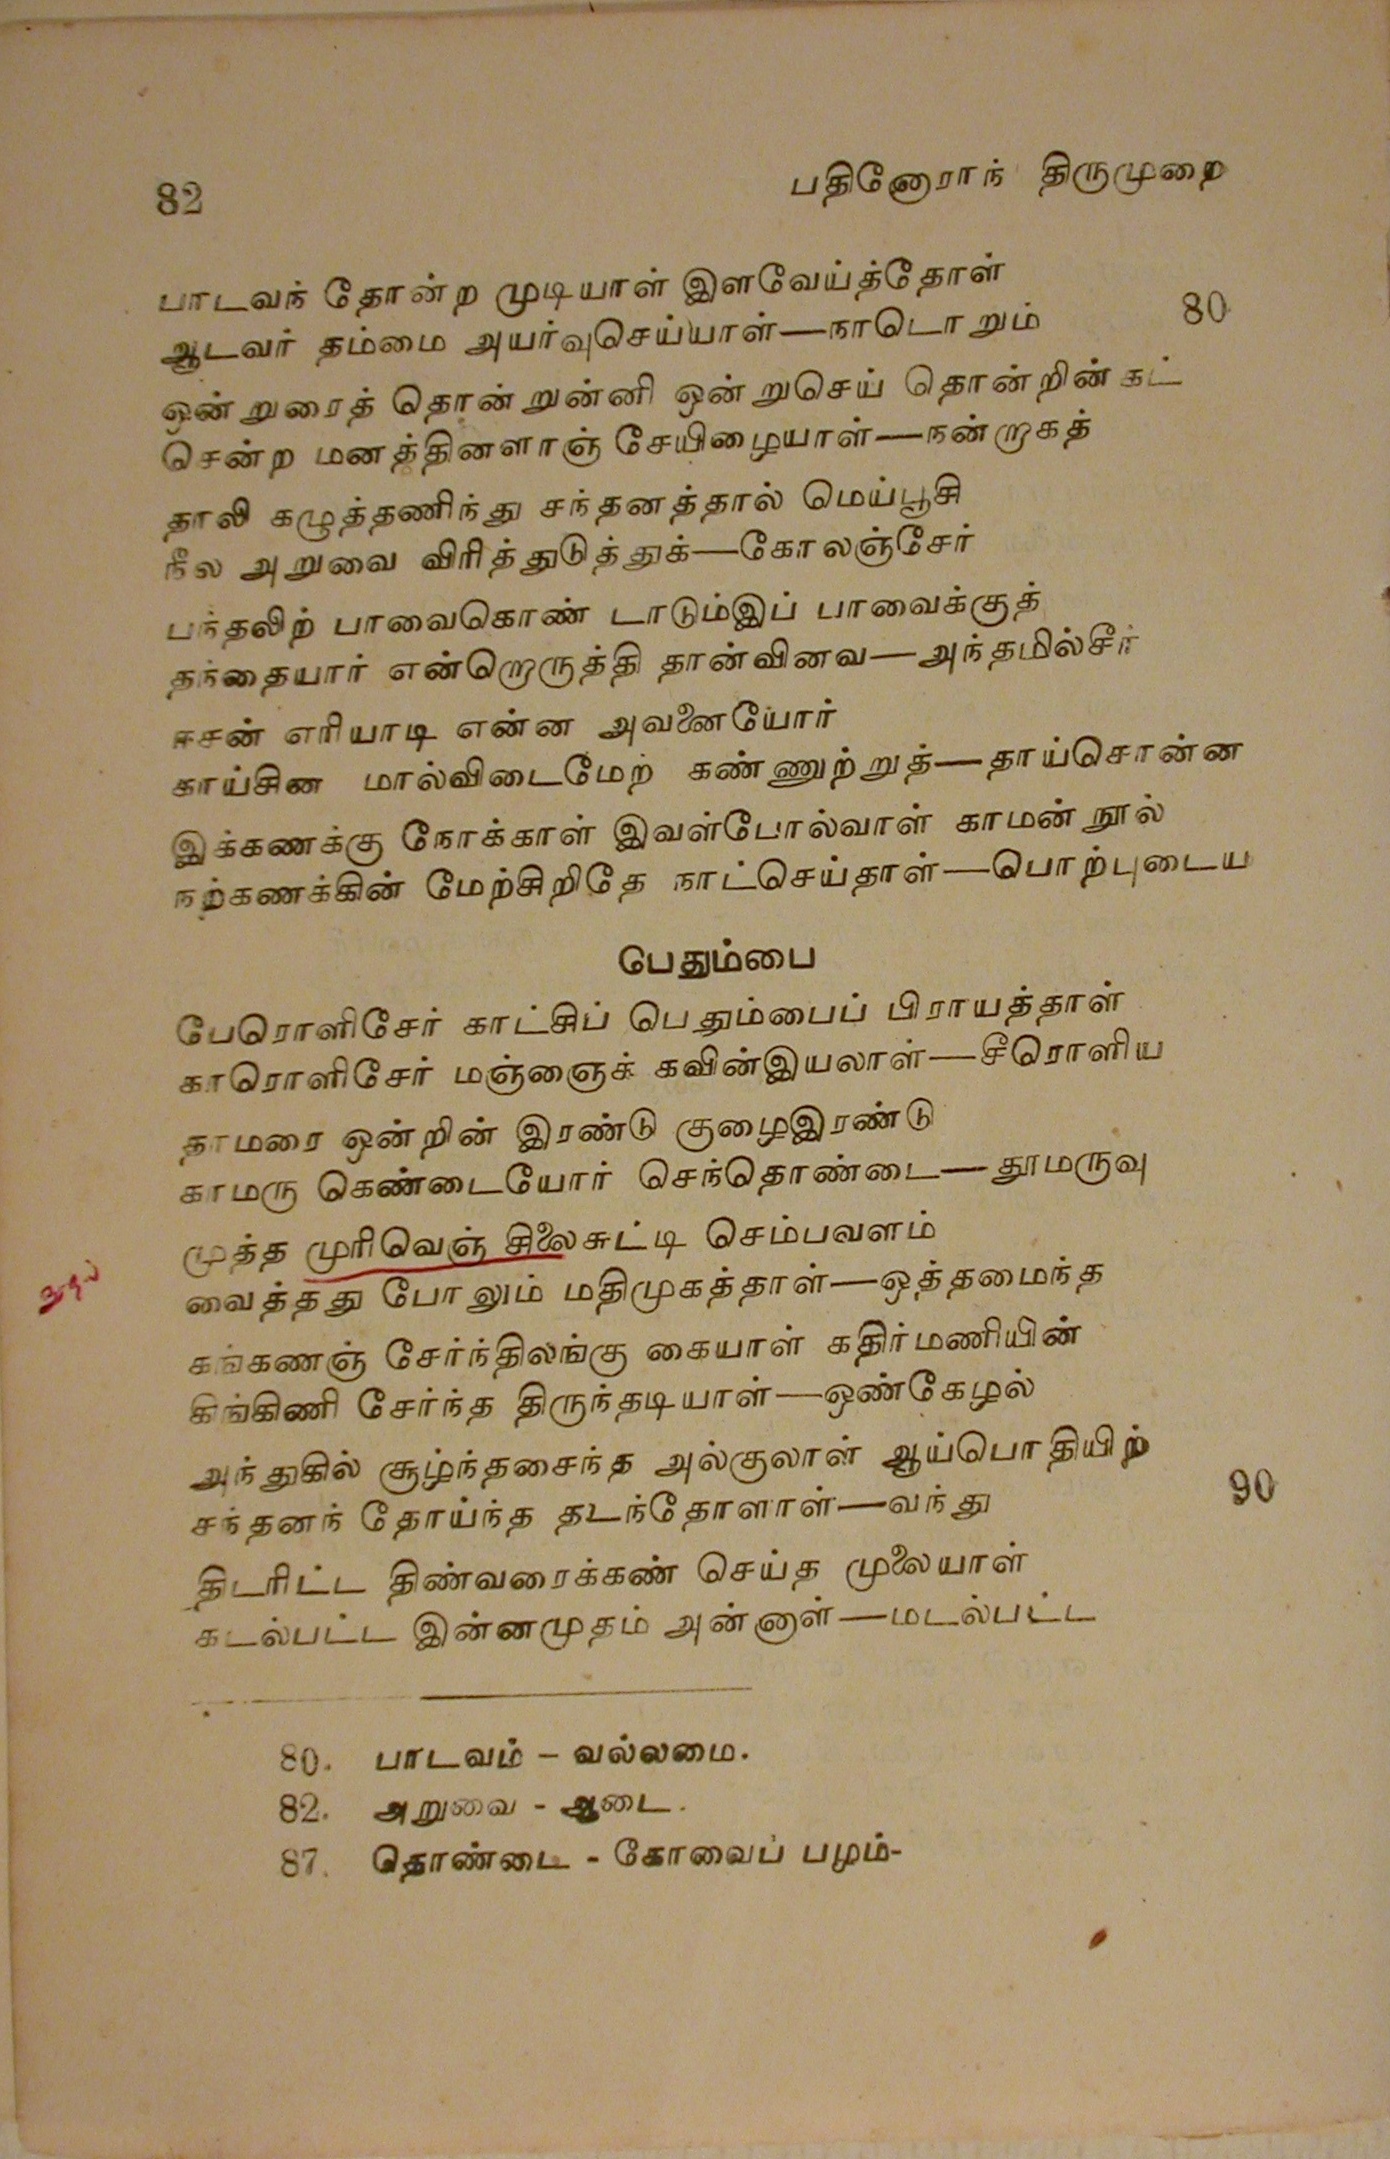 82
பதினோராந் திருமுறை
பாடவந் தோன்ற முடியாள் இளவேய்த்தோள்
ஆடவர் தம்மை அயர்வுசெய்யாள்—நாடொறும் 80
ஒன்றுரைத் தொன்றுன்னி ஒன்றுசெய் தொன்றின்கட்
சென்ற மனத்தினளாஞ் சேயிழையாள்—நன்றாகத்
தாலி கழுத்தணிந்து சந்தனத்தால் மெய்பூசி
நீல அறுவை விரித்துடுத்துக்—கோலஞ்சேர்
பந்தலிற் பாவைகொண் டாடும்இப் பாவைக்குத்
தந்தையார் என்றொருத்தி தான்வினவ—அந்தமில்சீர்
ஈசன் எரியாடி என்ன அவனையோர்
காய்சின மால்விடைமேற் கண்ணுற்றுத்—தாய்சொன்ன
இக்கணக்கு நோக்காள் இவள்போல்வாள் காமன்நூல்
நற்கணக்கின் மேற்சிறிதே நாட்செய்தாள்—பொற்புடைய
பேதும்பை
பேரொளிசேர் காட்சிப் பெதும்பைப் பிராயத்தாள்
காரொளிசேர் மஞ்ஞைக் கவின்இயலாள்—சீரொளிய
தாமரை ஒன்றின் இரண்டு குழைஇரண்டு
காமரு கெண்டையோர் செந்தொண்டை—தூமருவு
முத்த முரிவெஞ் சிலைசுட்டி செம்பவளம்
வைத்தது போலும் மதிமுகத்தாள்—ஒத்தமைந்த
கங்கணஞ் சேர்ந்திலங்கு கையாள் கதிர்மணியின்
கிங்கிணி சேர்ந்த திருந்தடியாள்—ஒண்கேழல்
அந்துகில் சூழ்ந்தசைந்த அல்குலாள் ஆய்பொதியிற்
சந்தனந் தோய்ந்த தடந்தோளாள்—வந்து 90
திடரிட்ட திண்வரைக்கண் செய்த முலையாள்
கடல்பட்ட இன்னமுதம் அன்னாள்—மடல்பட்ட
80. பாடவம் - வல்லமை.
82. அறுவை - ஆடை.
87. தொண்டை - கோவைப் பழம்-